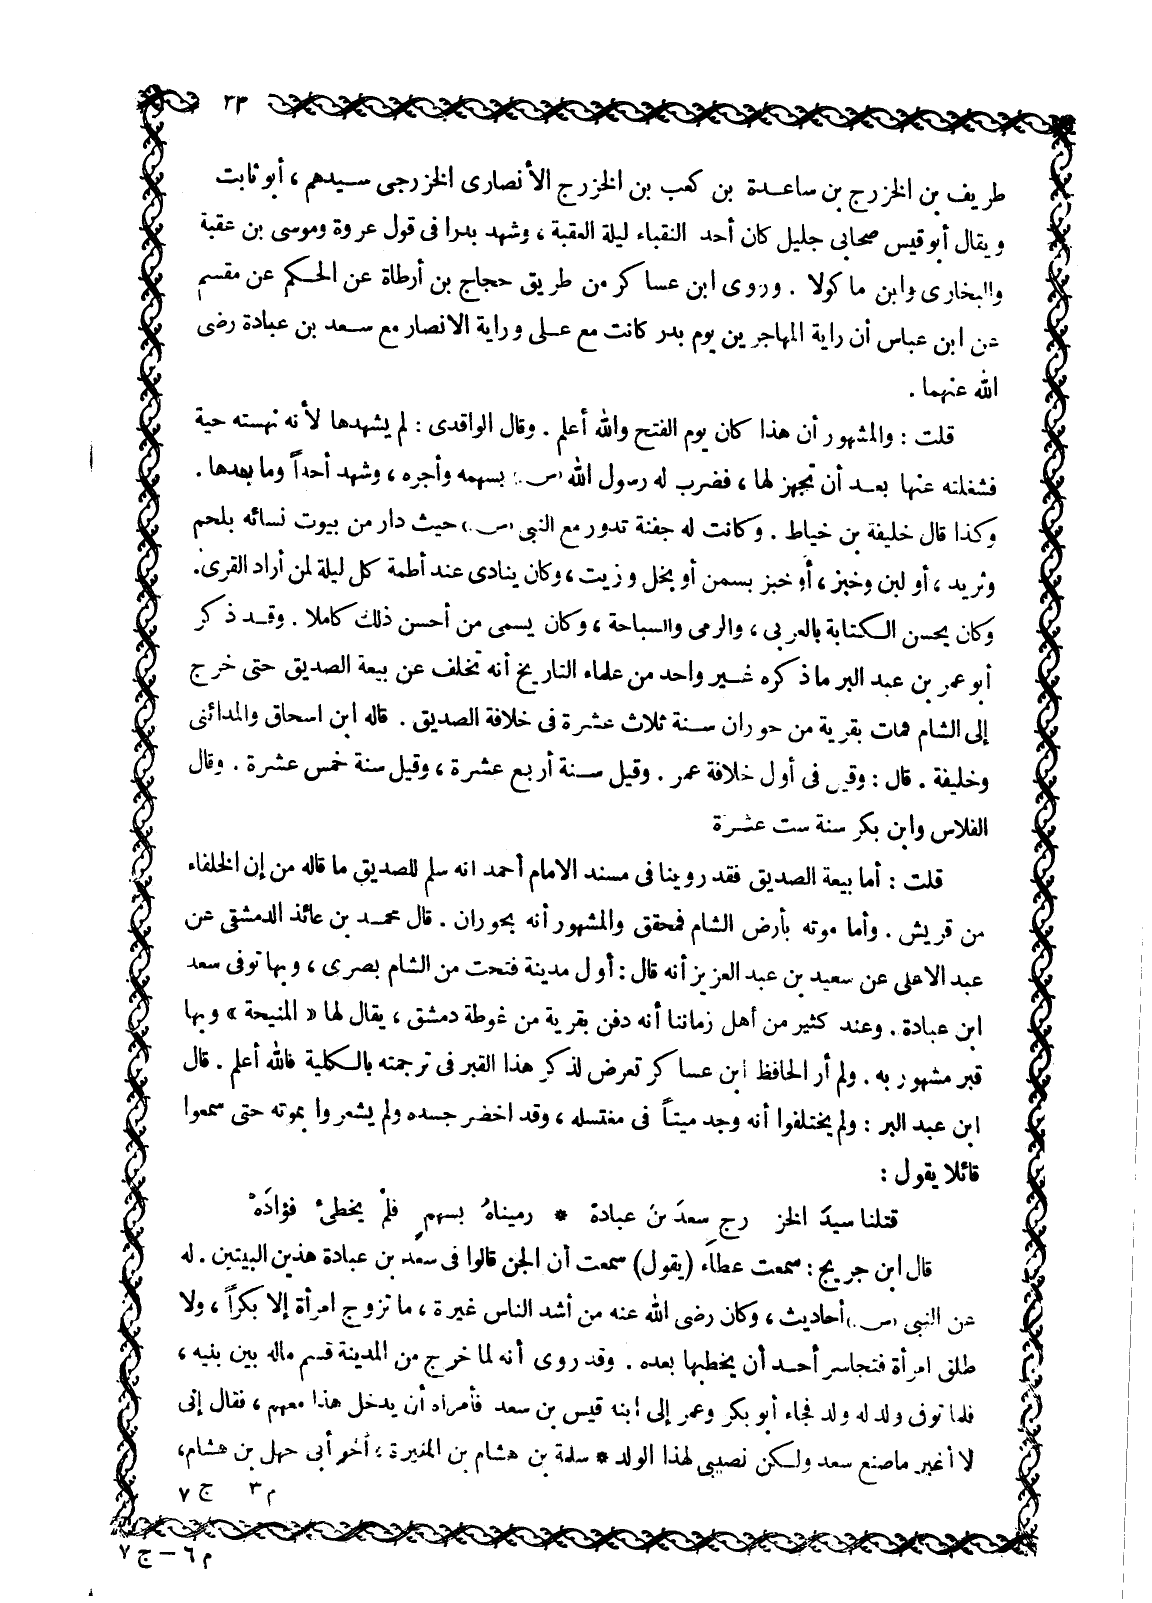 ٣٣
طريف بن الخزرج بن ساعدة بن كعب بن الخزرج الأنصارى الخزرجى سيدهم ، أبو ثابت
ويقال أبو قيس صحابي جليل كان أحد النقباء ليلة العقبة ، وشهد بدرا فى قول عروة وموسى بن عقبة
والبخارى وابن ماكولا . وروى ابن عساكر من طريق حجاج بن أرطاة عن الحكم عن مقسم
عن ابن عباس أن راية المهاجرين يوم بدر كانت مع على وراية الانصار مع سعد بن عبادة رضى
الله عنهما .
قلت : والمشهور أن هذا كان يوم الفتح والله أعلم . وقال الواقدى : لم يشهدها لأنه نهسته حية
فشغلته عنها بعد أن تجهز لها ، فضرب له رسول الله (ص) بسهمه وأجره ، وشهد أحداً وما بعدها .
وكذا قال خليفة بن خياط . وكانت له جفنة تدور مع النبى (ص) حيث دار من بيوت نسائه بلحم
وثريد ، أو لبن وخبز ، أو خبز بسمن أو بخل وزيت ، وكان ينادى عند أطمة كل ليلة لمن أراد القرى.
وكان يحسن الكتابة بالعربى ، والرمى والسباحة ، وكان يسمى من أحسن ذلك كاملا . وقد ذكر
أبو عمر بن عبد البر ما ذكره غير واحد من علماء التاريخ أنه تخلف عن بيعة الصديق حتى خرج
إلى الشام فمات بقرية من حوران سنة ثلاث عشرة فى خلافة الصديق . قاله ابن اسحاق والمدائنى
وخليفة . قال : وقيل فى أول خلافة عمر . وقيل سنة أربع عشرة ، وقيل سنة خمس عشرة . وقال
الفلاس وابن بكر سنة ست عشرة
قلت : أما بيعة الصديق فقد روينا فى مسند الامام أحمد انه سلم للصديق ما قاله من إن الخلفاء
من قريش . وأما موته بأرض الشام فمحقق والمشهور أنه بحوران . قال محمد بن عائذ الدمشقى عن
عبد الاعلى عن سعيد بن عبد العزيز أنه قال : أول مدينة فتحت من الشام بصرى ، وبها توفى سعد
ابن عبادة . وعند كثير من أهل زماننا أنه دفن بقرية من غوطة دمشق ، يقال لها « المنيحة » وبها
قبر مشهور به . ولم أر الحافظ ابن عساكر تعرض لذكر هذا القبر فى ترجمته بالكلية فالله أعلم . قال
ابن عبد البر : ولم يختلفوا أنه وجد ميتاً فى مغتسله ، وقد اخضر جسده ولم يشعروا بموته حتى سمعوا
قائلا يقول :
قتلنا سيدَ الخز رج سعدَ بنَ عبادة * رميناهُ بسهمٍ فلمْ يخطىْ فؤادَهْ
قال ابن جريج : سمعت عطاء (يقول) سمعت أن الجن قالوا فى سعد بن عبادة هذين البيتين . له
عن النبى (ص) أحاديث ، وكان رضى الله عنه من أشد الناس غيرة ، ما تزوج امرأة إلا بكراً ، ولا
طلق امرأة فتجاسر أحد أن يخطبها بعده . وقد روى أنه لما خرج من المدينة قسم ماله بين بنيه ،
فلما توفى ولد له ولد فجاء أبو بكر وعمر إلى ابنه قيس بن سعد فأمراه أن يدخل هذا معهم ، فقال إنى
لا أغير ما صنع سعد ولكن نصيبى لهذا الولد * سلمة بن هشام بن المغيرة ، أخو أبى جهل بن هشام،
م ٣ ج ٧
م ٦ – ج ٧